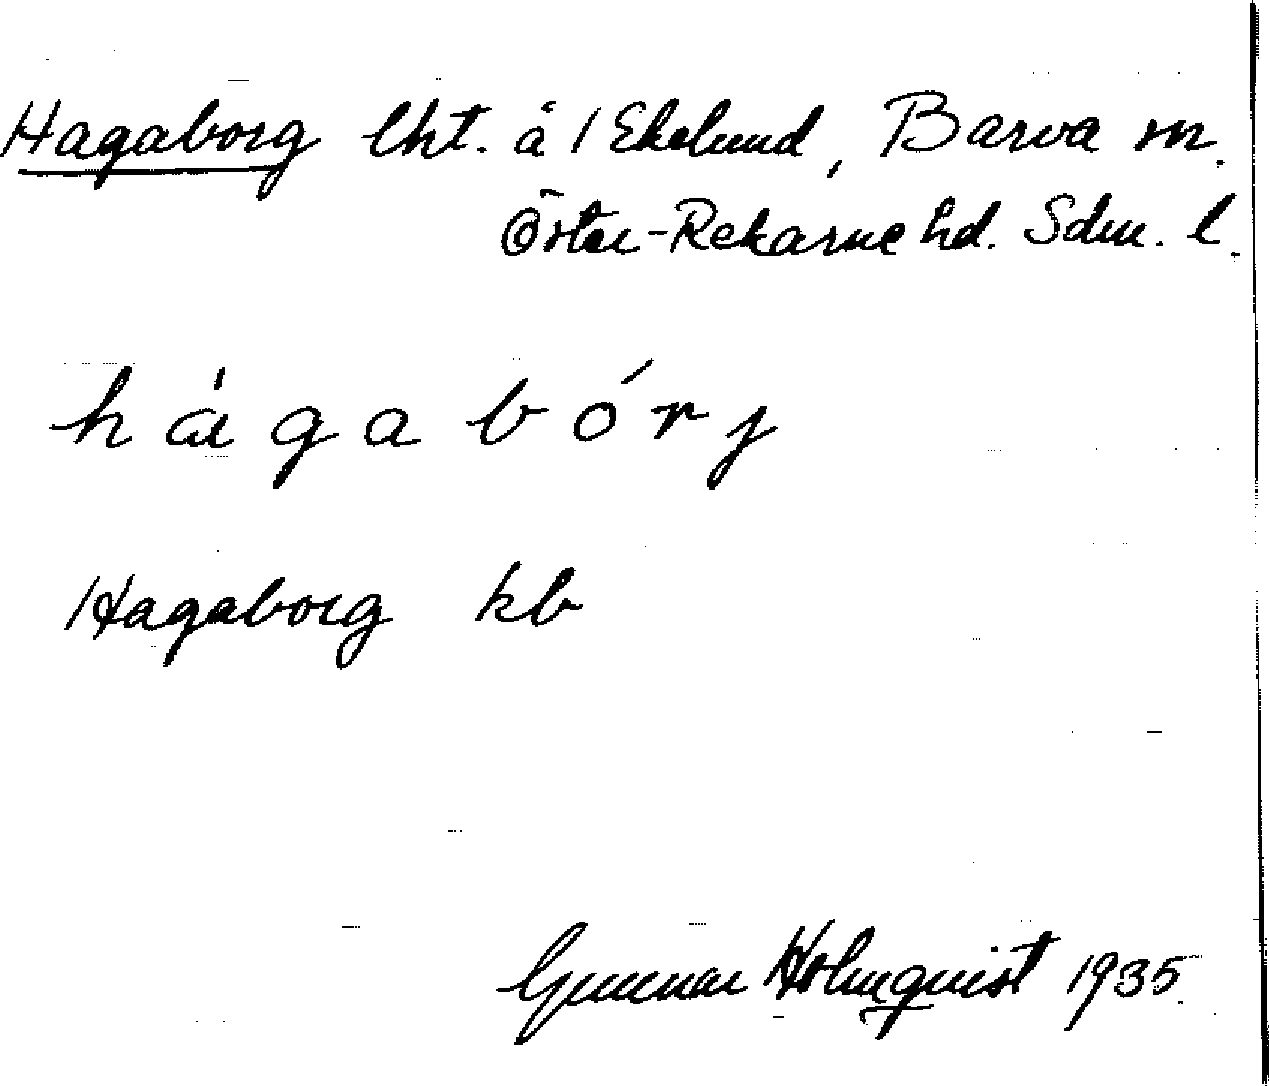 Hagaborg lht. å 1 Ekelund, Barva sn.
Öster-Rekarne hd. Sdm. l.
hágabórj
Hagaborg kb
Gunnar Holmquist 1935